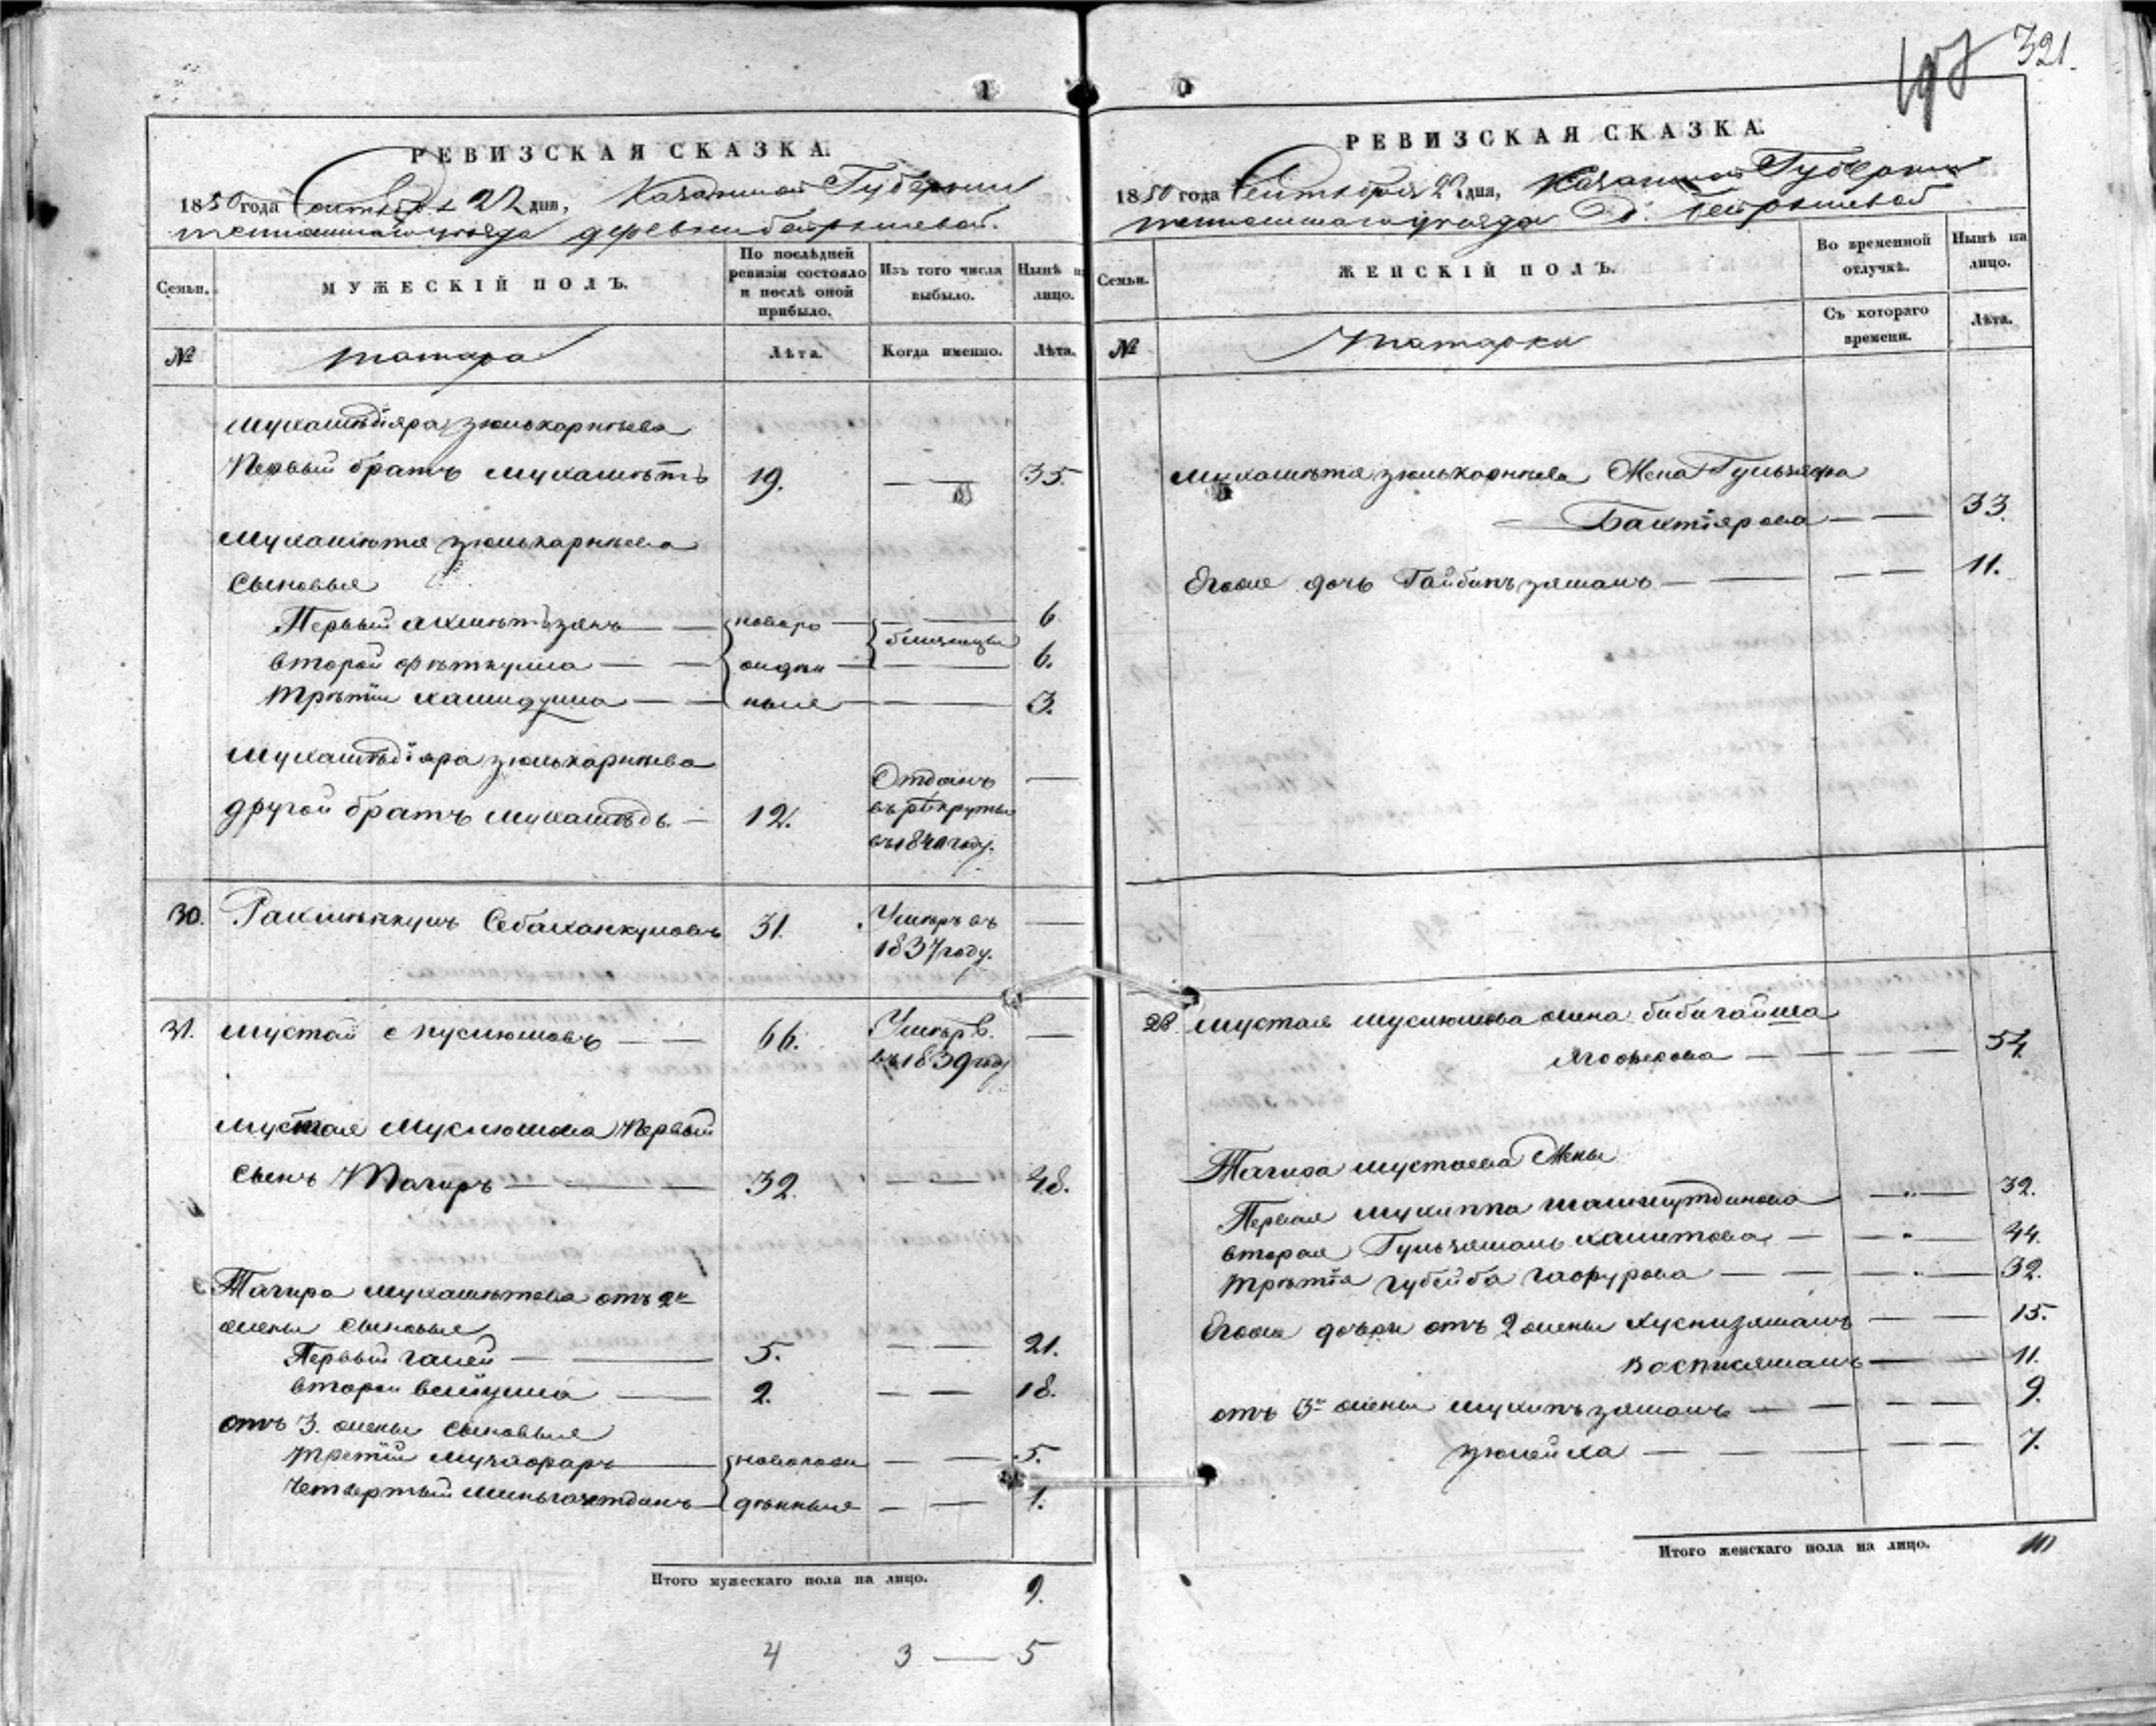 321.
197
РЕВИЗСКАЯ СКАЗКА.
1850 года Сентября 22 дня, Казанской Губернии
уезда деревни
Семьи.
МУЖЕСКІЙ ПОЛЪ.
По послѣдней ревизіи состояло и послѣ оной прибыло.
Изъ того числа выбыло.
Нынѣ на лицо.
№
татара
Лѣта.
Когда именно.
Лѣта.
Мухаметдіяра Зюлькарнѣева
Первый братъ Мухаметъ 19. — — 35.
Мухаметя Зюлькарнѣева
Сыновья
Первый Ахметьзянъ — — новоро — близнецы — 6
второй Фѣткулла — — ждѣн — — 6.
третій Хамидулла — — ныя — — — 3.
Мухаметдіяра Зюлькарнѣева
другой братъ Мухамѣдъ — 12. Отданъ въ рѣкруты въ 1840 году. —
30. Рахманкулъ 31. Умѣръ въ 1837 году. —
31. Мустай Муслюмовъ — — 66. Умѣръ въ 1839 году —
Мустая Муслюмова Первый
сынъ Тагиръ — — — 32. — — 48.
Тагира Мухаметева отъ 2й
жены сыновья
Первый Галей — — 5. — — 21.
второй — 2. — — 18.
отъ 3. жены сыновья
третій Музафаръ — новорож — — 5.
Четвертый — дѣнныя — — 1.
Итого мужескаго пола на лицо. 9.
4 3 — 5
РЕВИЗСКАЯ СКАЗКА.
1850 года Сентября 22 дня, Казанской Губернии
уезда Д.
Семьи.
ЖЕНСКІЙ ПОЛЪ.
Во временной отлучкѣ.
Нынѣ на лицо.
№
татарки
Съ котораго времени.
Лѣта.
Мухаметя Зюлькарнѣева Жена Гульзяфра
Бактіярова — — 33.
Егоже дочь Гайбизямалъ — — — — 11.
28. Мустая Муслюмова жена Бибигайша
Ягоферова — — — — 54.
Тагира Мустаева Жены
Первая Мухиппа — — 32.
вторая Гульзямалъ Хамитова — — — 44.
третія Губейба Гафурова — — — — 32.
Егоже дочери отъ 2 жены Хуснизямалъ — — 15.
Васписямалъ — — 11.
отъ 3й жены Мухипъзямалъ — — — — 9.
Зюлейха — — — — 7.
Итого женскаго пола на лицо. 10